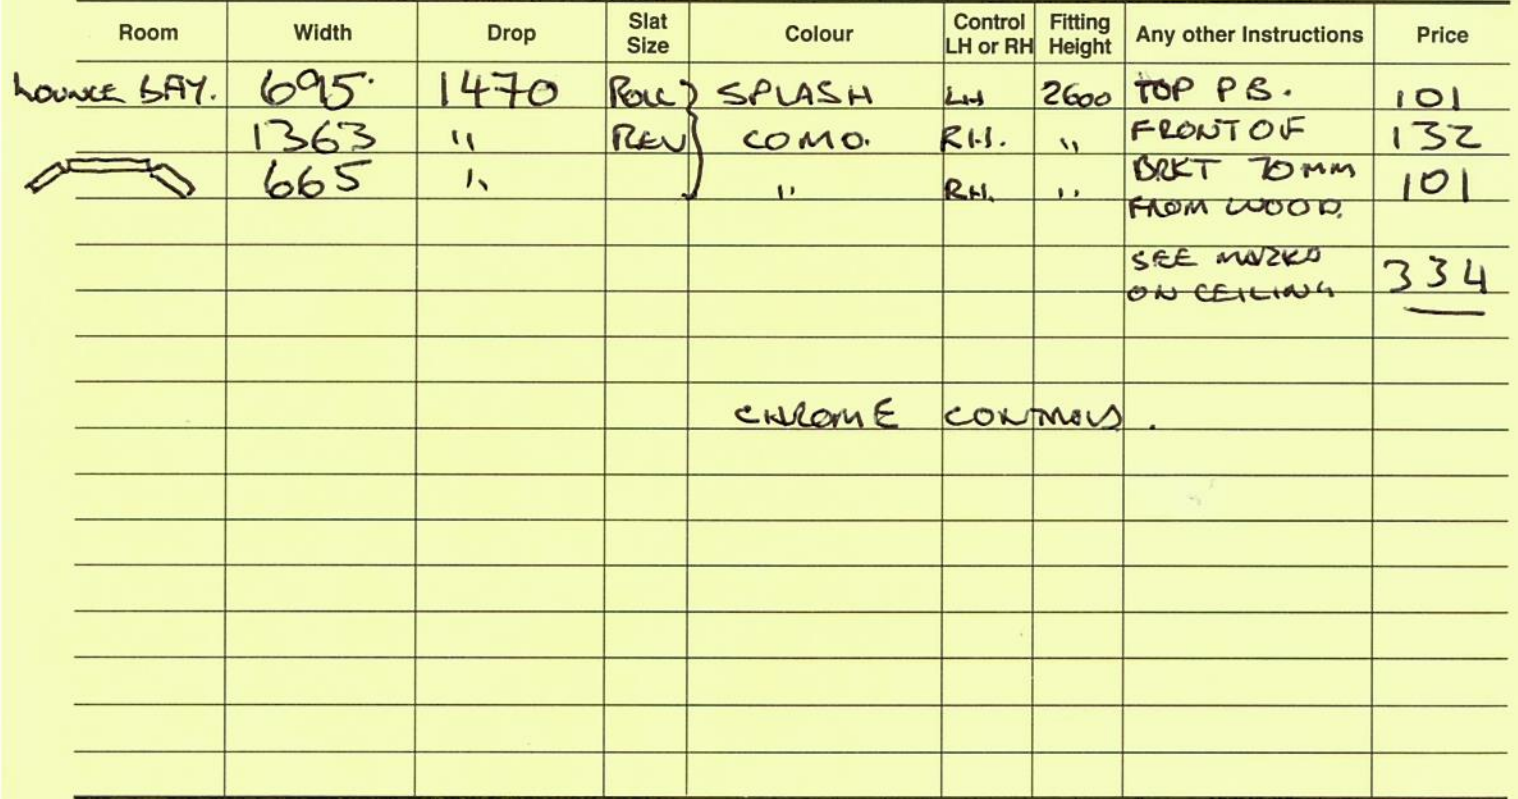 Room Width Drop Slat Size Colour Control LH or RH Fitting Height Any other Instructions Price
LOUNGE BAY. 695 1470 ROLL SPLASH LH 2600 TOP PB. 101
1363 " REV COMO. RH. " FRONT OF 132
665 " " RH. " BRKT 70MM 101
FROM WOOD.
SEE MARKS
ON CEILING 334
CHROME CONTROLS.